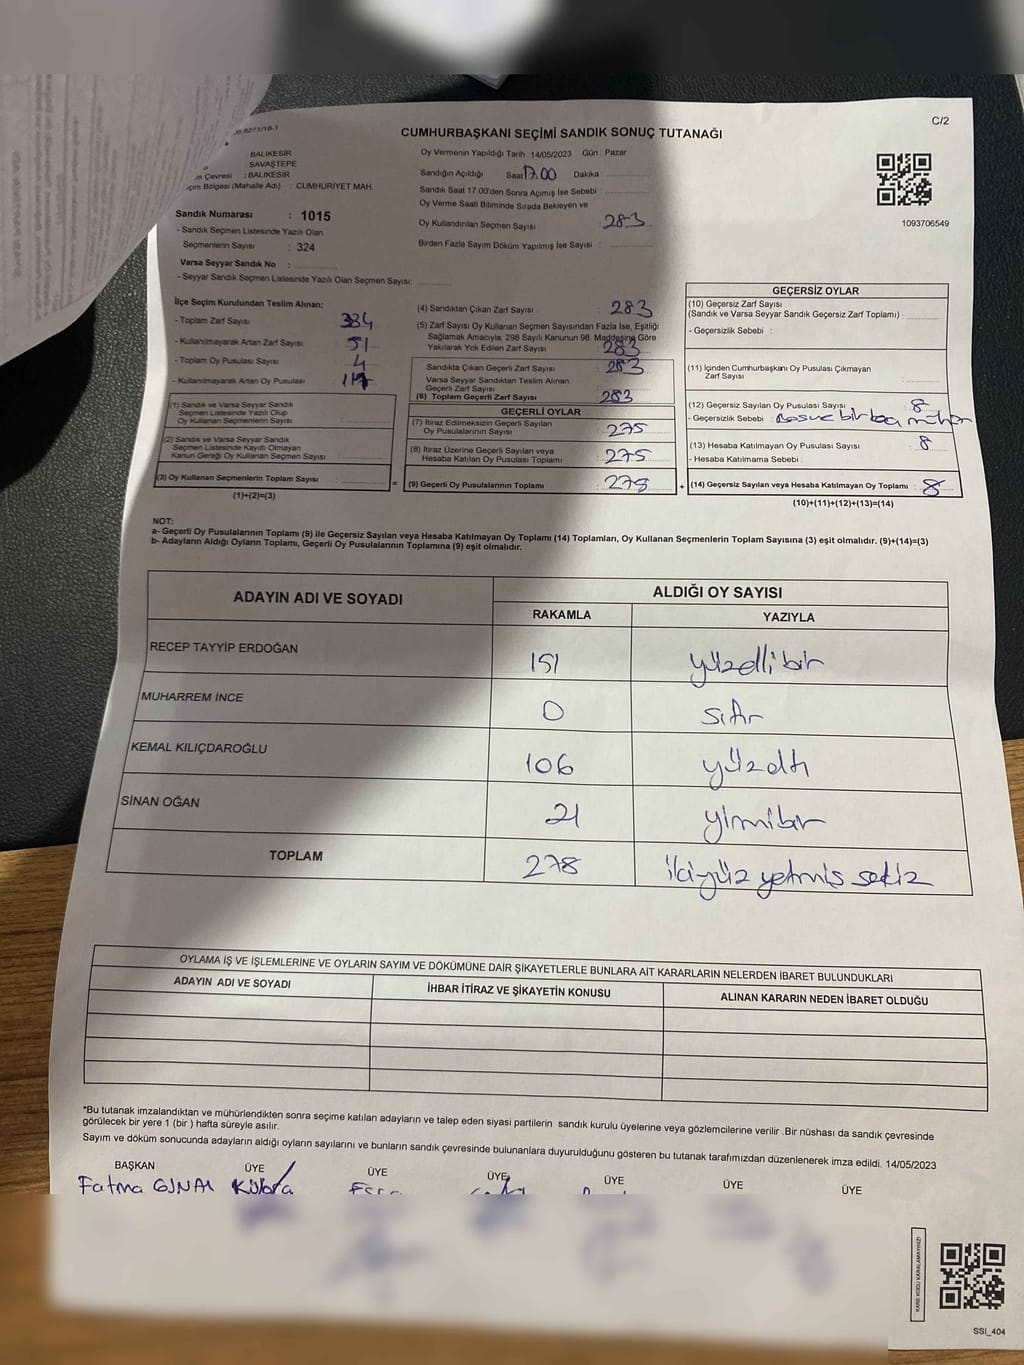 C/2
CUMHURBAŞKANI SEÇİMİ SANDIK SONUÇ TUTANAĞI
: BALIKESİR
: SAVAŞTEPE
Çevresi : BALIKESİR
Bölgesi (Mahalle Adı) : CUMHURİYET MAH.
Sandık Numarası : 1015
- Sandık Seçmen Listesinde Yazılı Olan
Seçmenlerin Sayısı : 324
Varsa Seyyar Sandık No :
- Seyyar Sandık Seçmen Listesinde Yazılı Olan Seçmen Sayısı:
Oy Vermenin Yapıldığı Tarih :14/05/2023 Gün : Pazar
Sandığın Açıldığı Saat 17.00 Dakika :
Sandık Saat 17.00'den Sonra Açımış İse Sebebi :
Oy Verme Saati Bitiminde Sırada Bekleyen ve
Oy Kullandırılan Seçmen Sayısı : 283
Birden Fazla Sayım Döküm Yapılmış İse Sayısı :
1093706549
İlçe Seçim Kurulundan Teslim Alınan;
- Toplam Zarf Sayısı : 334
- Kullanılmayarak Artan Zarf Sayısı : 51
- Toplam Oy Pusulası Sayısı : 4
- Kullanılmayarak Artan Oy Pusulası :
(1) Sandık ve Varsa Seyyar Sandık
Seçmen Listesinde Yazılı Olup
Oy Kullanan Seçmenlerin Sayısı :
(2) Sandık ve Varsa Seyyar Sandık
Seçmen Listesinde Kayıtlı Olmayan
Kanun Gereği Oy Kullanan Seçmen Sayısı :
(3) Oy Kullanan Seçmenlerin Toplam Sayısı :
(1)+(2)=(3)
=
(4) Sandıktan Çıkan Zarf Sayısı : 283
(5) Zarf Sayısı Oy Kullanan Seçmen Sayısından Fazla İse, Eşitliği
Sağlamak Amacıyla; 298 Sayılı Kanunun 98. Maddesine Göre
Yakılarak Yok Edilen Zarf Sayısı : 283
Sandıkta Çıkan Geçerli Zarf Sayısı : 283
Varsa Seyyar Sandıktan Teslim Alınan
Geçerli Zarf Sayısı
(6) Toplam Geçerli Zarf Sayısı : 283
GEÇERLİ OYLAR
(7) İtiraz Edilmeksizin Geçerli Sayılan
Oy Pusulalarının Sayısı : 275
(8) İtiraz Üzerine Geçerli Sayılan veya
Hesaba Katılan Oy Pusulası Toplamı : 275
(9) Geçerli Oy Pusulalarının Toplamı :
+
GEÇERSİZ OYLAR
(10) Geçersiz Zarf Sayısı
(Sandık ve Varsa Seyyar Sandık Geçersiz Zarf Toplamı) :
- Geçersizlik Sebebi :
(11) İçinden Cumhurbaşkanı Oy Pusulası Çıkmayan
Zarf Sayısı :
(12) Geçersiz Sayılan Oy Pusulası Sayısı : 8
- Geçersizlik Sebebi :
(13) Hesaba Katılmayan Oy Pusulası Sayısı : 8
- Hesaba Katılmama Sebebi :
(14) Geçersiz Sayılan veya Hesaba Katılmayan Oy Toplamı : 8
(10)+(11)+(12)+(13)=(14)
NOT:
a- Geçerli Oy Pusulalarının Toplamı (9) ile Geçersiz Sayılan veya Hesaba Katılmayan Oy Toplamı (14) Toplamları, Oy Kullanan Seçmenlerin Toplam Sayısına (3) eşit olmalıdır. (9)+(14)=(3)
b- Adayların Aldığı Oyların Toplamı, Geçerli Oy Pusulalarının Toplamına (9) eşit olmalıdır.
ADAYIN ADI VE SOYADI ALDIĞI OY SAYISI
RAKAMLA YAZIYLA
RECEP TAYYİP ERDOĞAN 151 yüzellibir
MUHARREM İNCE 0 sıfır
KEMAL KILIÇDAROĞLU 106 yüzaltı
SİNAN OĞAN 21 yirmibir
TOPLAM 278 ikiyüz yetmiş sekiz
OYLAMA İŞ VE İŞLEMLERİNE VE OYLARIN SAYIM VE DÖKÜMÜNE DAİR ŞİKAYETLERLE BUNLARA AİT KARARLARIN NELERDEN İBARET BULUNDUKLARI
ADAYIN ADI VE SOYADI İHBAR İTİRAZ VE ŞİKAYETİN KONUSU ALINAN KARARIN NEDEN İBARET OLDUĞU
*Bu tutanak imzalandıktan ve mühürlendikten sonra seçime katılan adayların ve talep eden siyasi partilerin sandık kurulu üyelerine veya gözlemcilerine verilir .Bir nüshası da sandık çevresinde
görülecek bir yere 1 (bir ) hafta süreyle asılır.
Sayım ve döküm sonucunda adayların aldığı oyların sayılarını ve bunların sandık çevresinde bulunanlara duyurulduğunu gösteren bu tutanak tarafımızdan düzenlenerek imza edildi. 14/05/2023
BAŞKAN ÜYE ÜYE ÜYE ÜYE ÜYE ÜYE
Fatma GÜNAL Kübra
KARE KODU KARALAMAYINIZ!
SSI_404